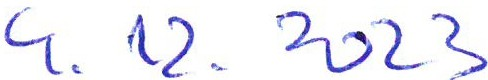 9. 12. 2023